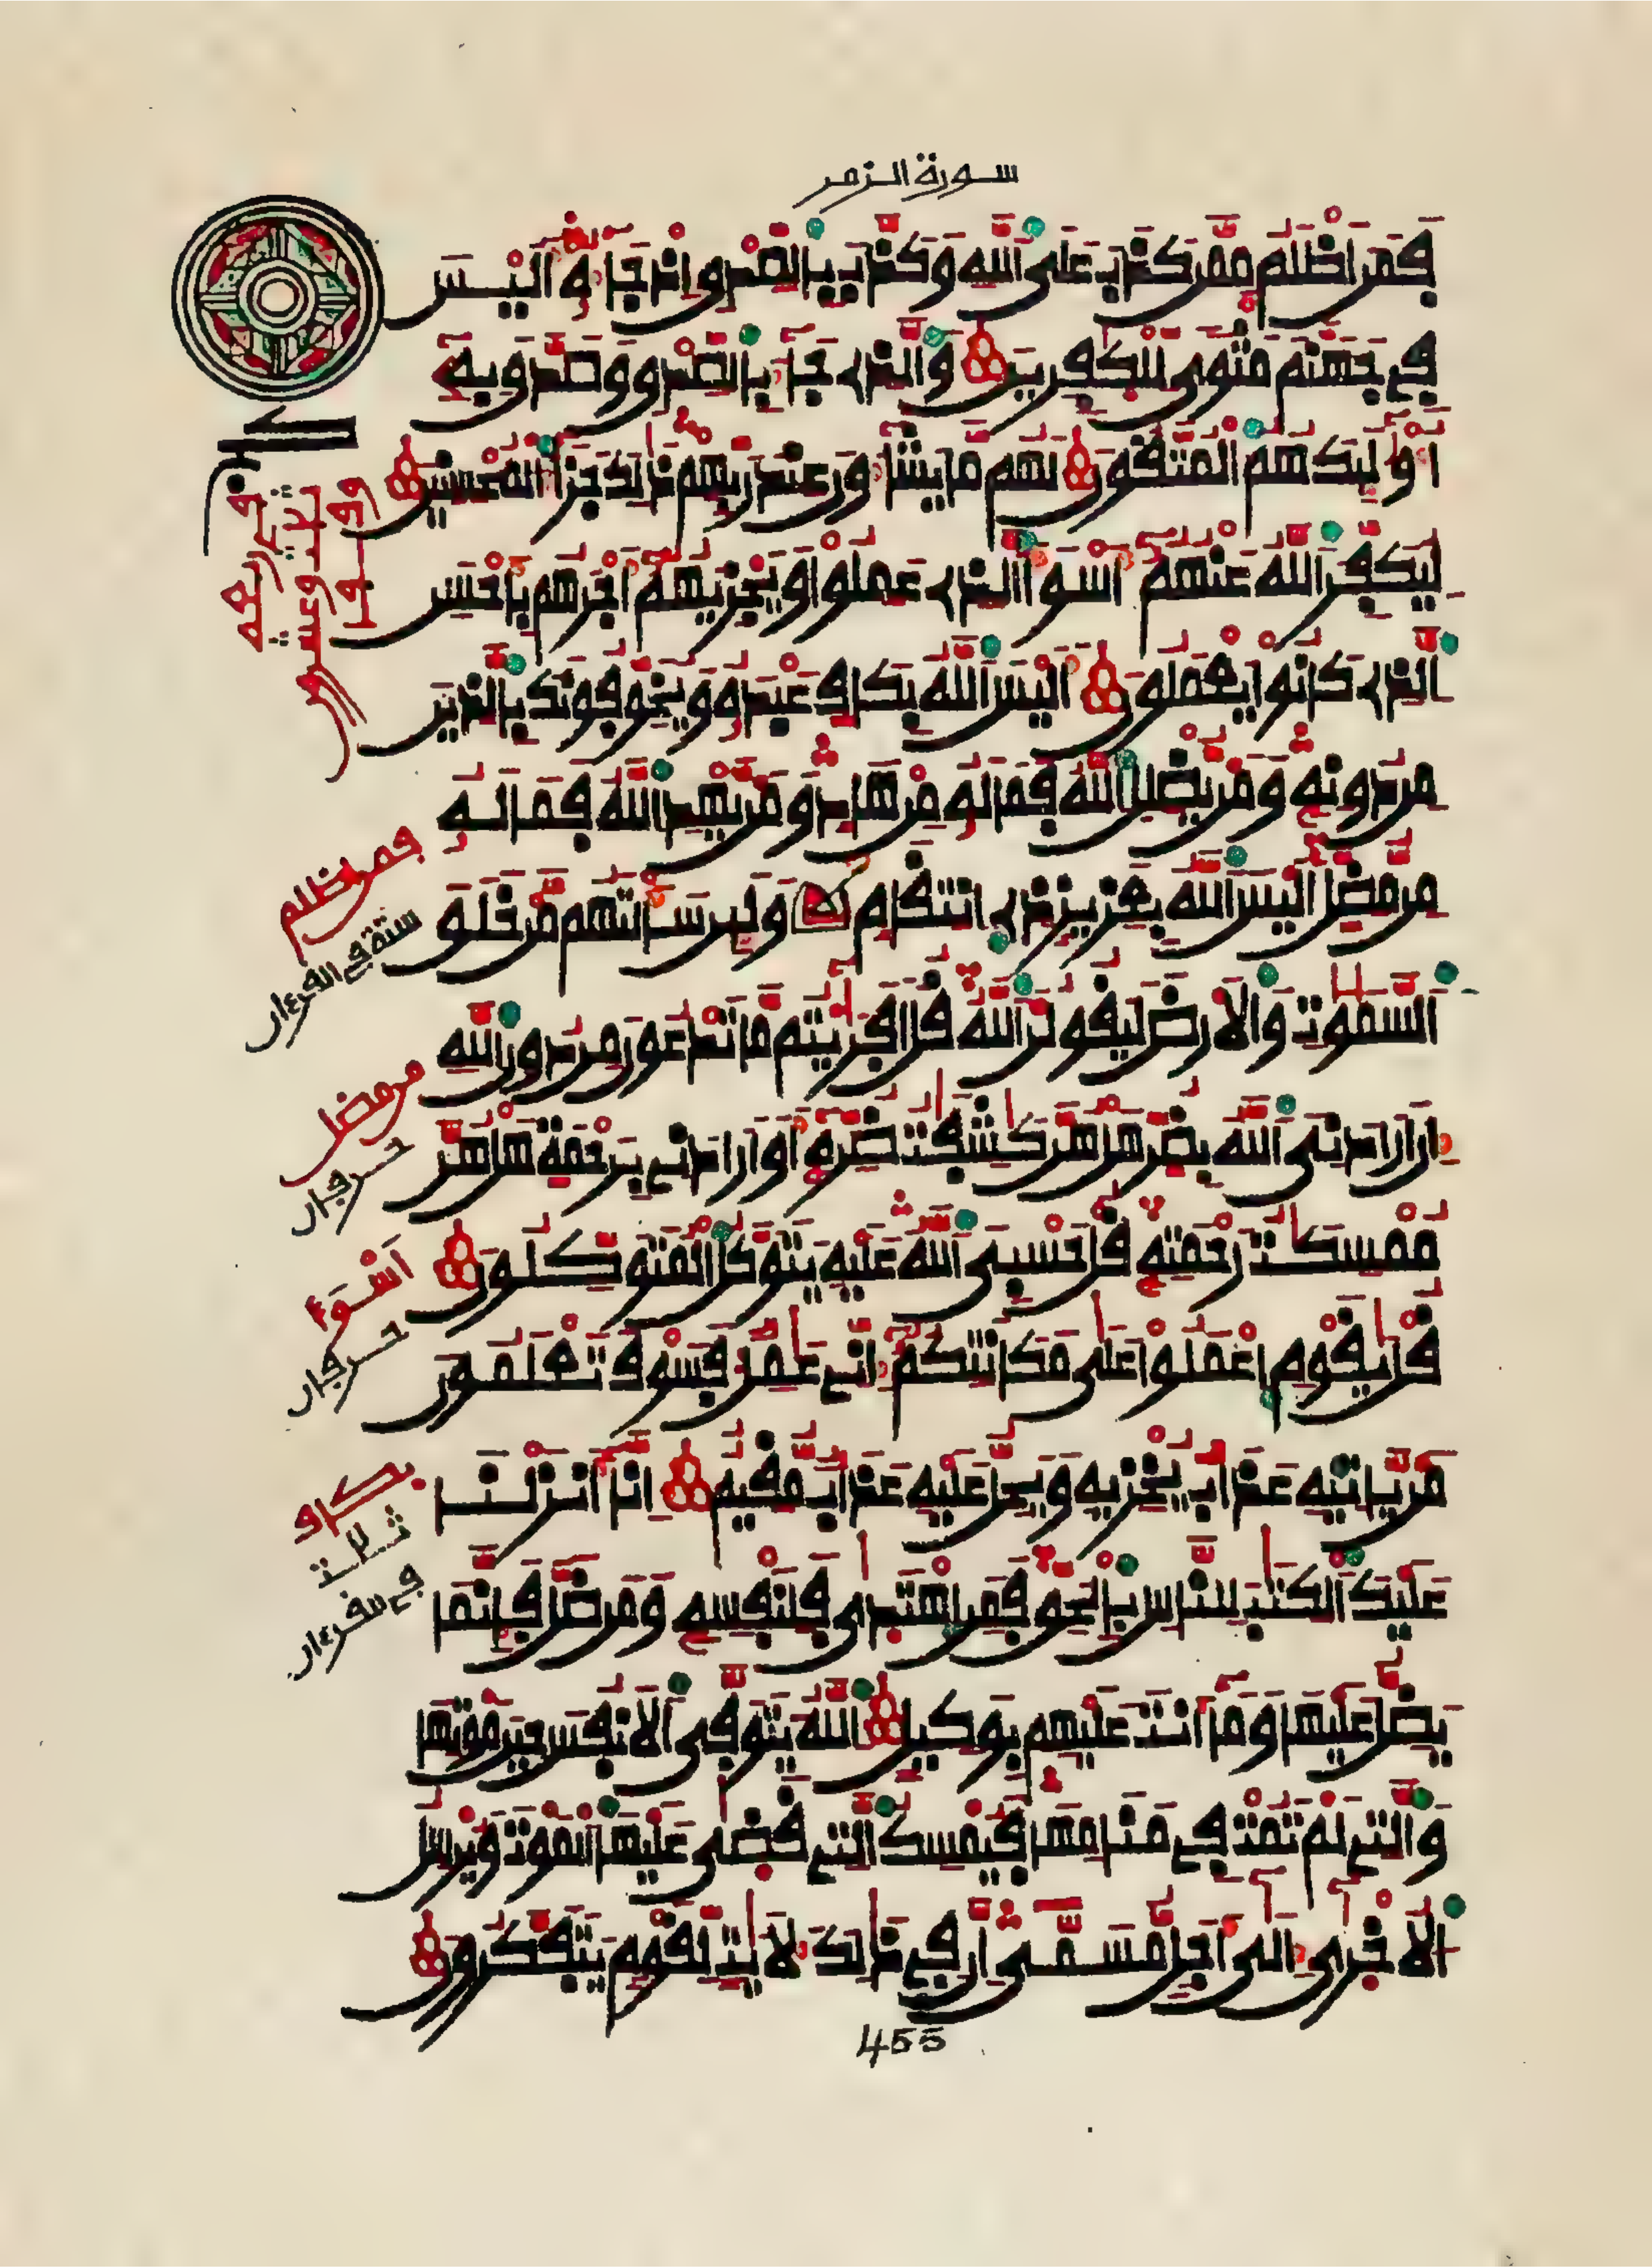 سورة الزمر
فَمَنَ اَظْلَمُ مِمَّن كَذَبَ عَلَى اَللَّهِ وَكَذَّبَ بِالصِّدْقِ إِذْ جَآءَهُۥٓ أَلَيْسَ
فِے جَهَنَّمَ مَثْوىً لِّلْكٰفِرِينَ وَالذِے جَآءَ بِالصِّدْقِ وَصَدَّقَ بِهِۦٓ
أُوْلَٰٓئِكَ هُمُ الْمُتَّقُونَ لَهُم مَّا يَشَآءُونَ عِندَ رَبِّهِمْ ذَٰلِكَ جَزَآءُ الْمُحْسِنِينَ
لِيُكَفِّرَ اَللَّهُ عَنْهُمُۥٓ أَسْوَأَ اَلذِے عَمِلُواْ وَيَجْزِيَهُمُۥٓ أَجْرَهُم بِأَحْسَنِ
اِلذِے كَانُواْ يَعْمَلُونَ أَلَيْسَ اَللَّهُ بِكَافٍ عَبْدَهُۥ وَيُخَوِّفُونَكَ بِالذِينَ
مِن دُونِهِۦ وَمَنْ يُّضْلِلِ اِللَّهُ فَمَا لَهُۥ مِنْ هَادٍ وَمَنْ يَّهْدِ اِللَّهُ فَمَا لَهُۥ
مِن مُّضِلٍّ اَلَيْسَ اَللَّهُ بِعَزِيزٍ ذِے اِنتِقَامٍ وَلَئِن سَأَلْتَهُم مَّنْ خَلَقَ
اَلسَّمَٰوَٰتِ وَالَارْضَ لَيَقُولُنَّ اَللَّهُ قُلَ اَفَرَٰٓيْتُم مَّا تَدْعُونَ مِن دُونِ اِللَّهِ
إِنَ اَرَادَنِيَ اَللَّهُ بِضُرٍّ هَلْ هُنَّ كَٰشِفَٰتُ ضُرِّهِۦٓ أَوَ اَرَادَنِے بِرَحْمَةٍ هَلْ هُنَّ
مُمْسِكَٰتُ رَحْمَتِهِۦ قُلْ حَسْبِيَ اَللَّهُ عَلَيْهِ يَتَوَكَّلُ الْمُتَوَكِّلُونَ
قُلْ يَٰقَوْمِ اِعْمَلُواْ عَلَىٰ مَكَانَتِكُمُۥٓ إِنِّے عَٰمِلٌ فَسَوْفَ تَعْلَمُونَ
مَنْ يَّاتِيهِ عَذَابٌ يُخْزِيهِ وَيَحِلُّ عَلَيْهِ عَذَابٌ مُّقِيمٌ اِنَّآ أَنزَلْنَا
عَلَيْكَ اَلْكِتَٰبَ لِلنَّاسِ بِالْحَقِّ فَمَنِ اِهْتَدَىٰ فَلِنَفْسِهِۦ وَمَن ضَلَّ فَإِنَّمَا
يَضِلُّ عَلَيْهَا وَمَآ أَنتَ عَلَيْهِم بِوَكِيلٍ اِللَّهُ يَتَوَفَّى اَلَانفُسَ حِينَ مَوْتِهَا
وَالتِے لَمْ تَمُتْ فِے مَنَامِهَا فَيُمْسِكُ اُلتِے قَضَىٰ عَلَيْهَا اَلْمَوْتَ وَيُرْسِلُ
اُلُاخْرَىٰٓ إِلَىٰٓ أَجَلٍ مُّسَمّىً اِنَّ فِے ذَٰلِكَ لَأٓيَٰتٍ لِّقَوْمٍ يَتَفَكَّرُونَ
فمن اظلم
ستة في القرءان
من مضل
حرفان
أسوء
حرفان
بكاف
ثلاث
في القرءان
455